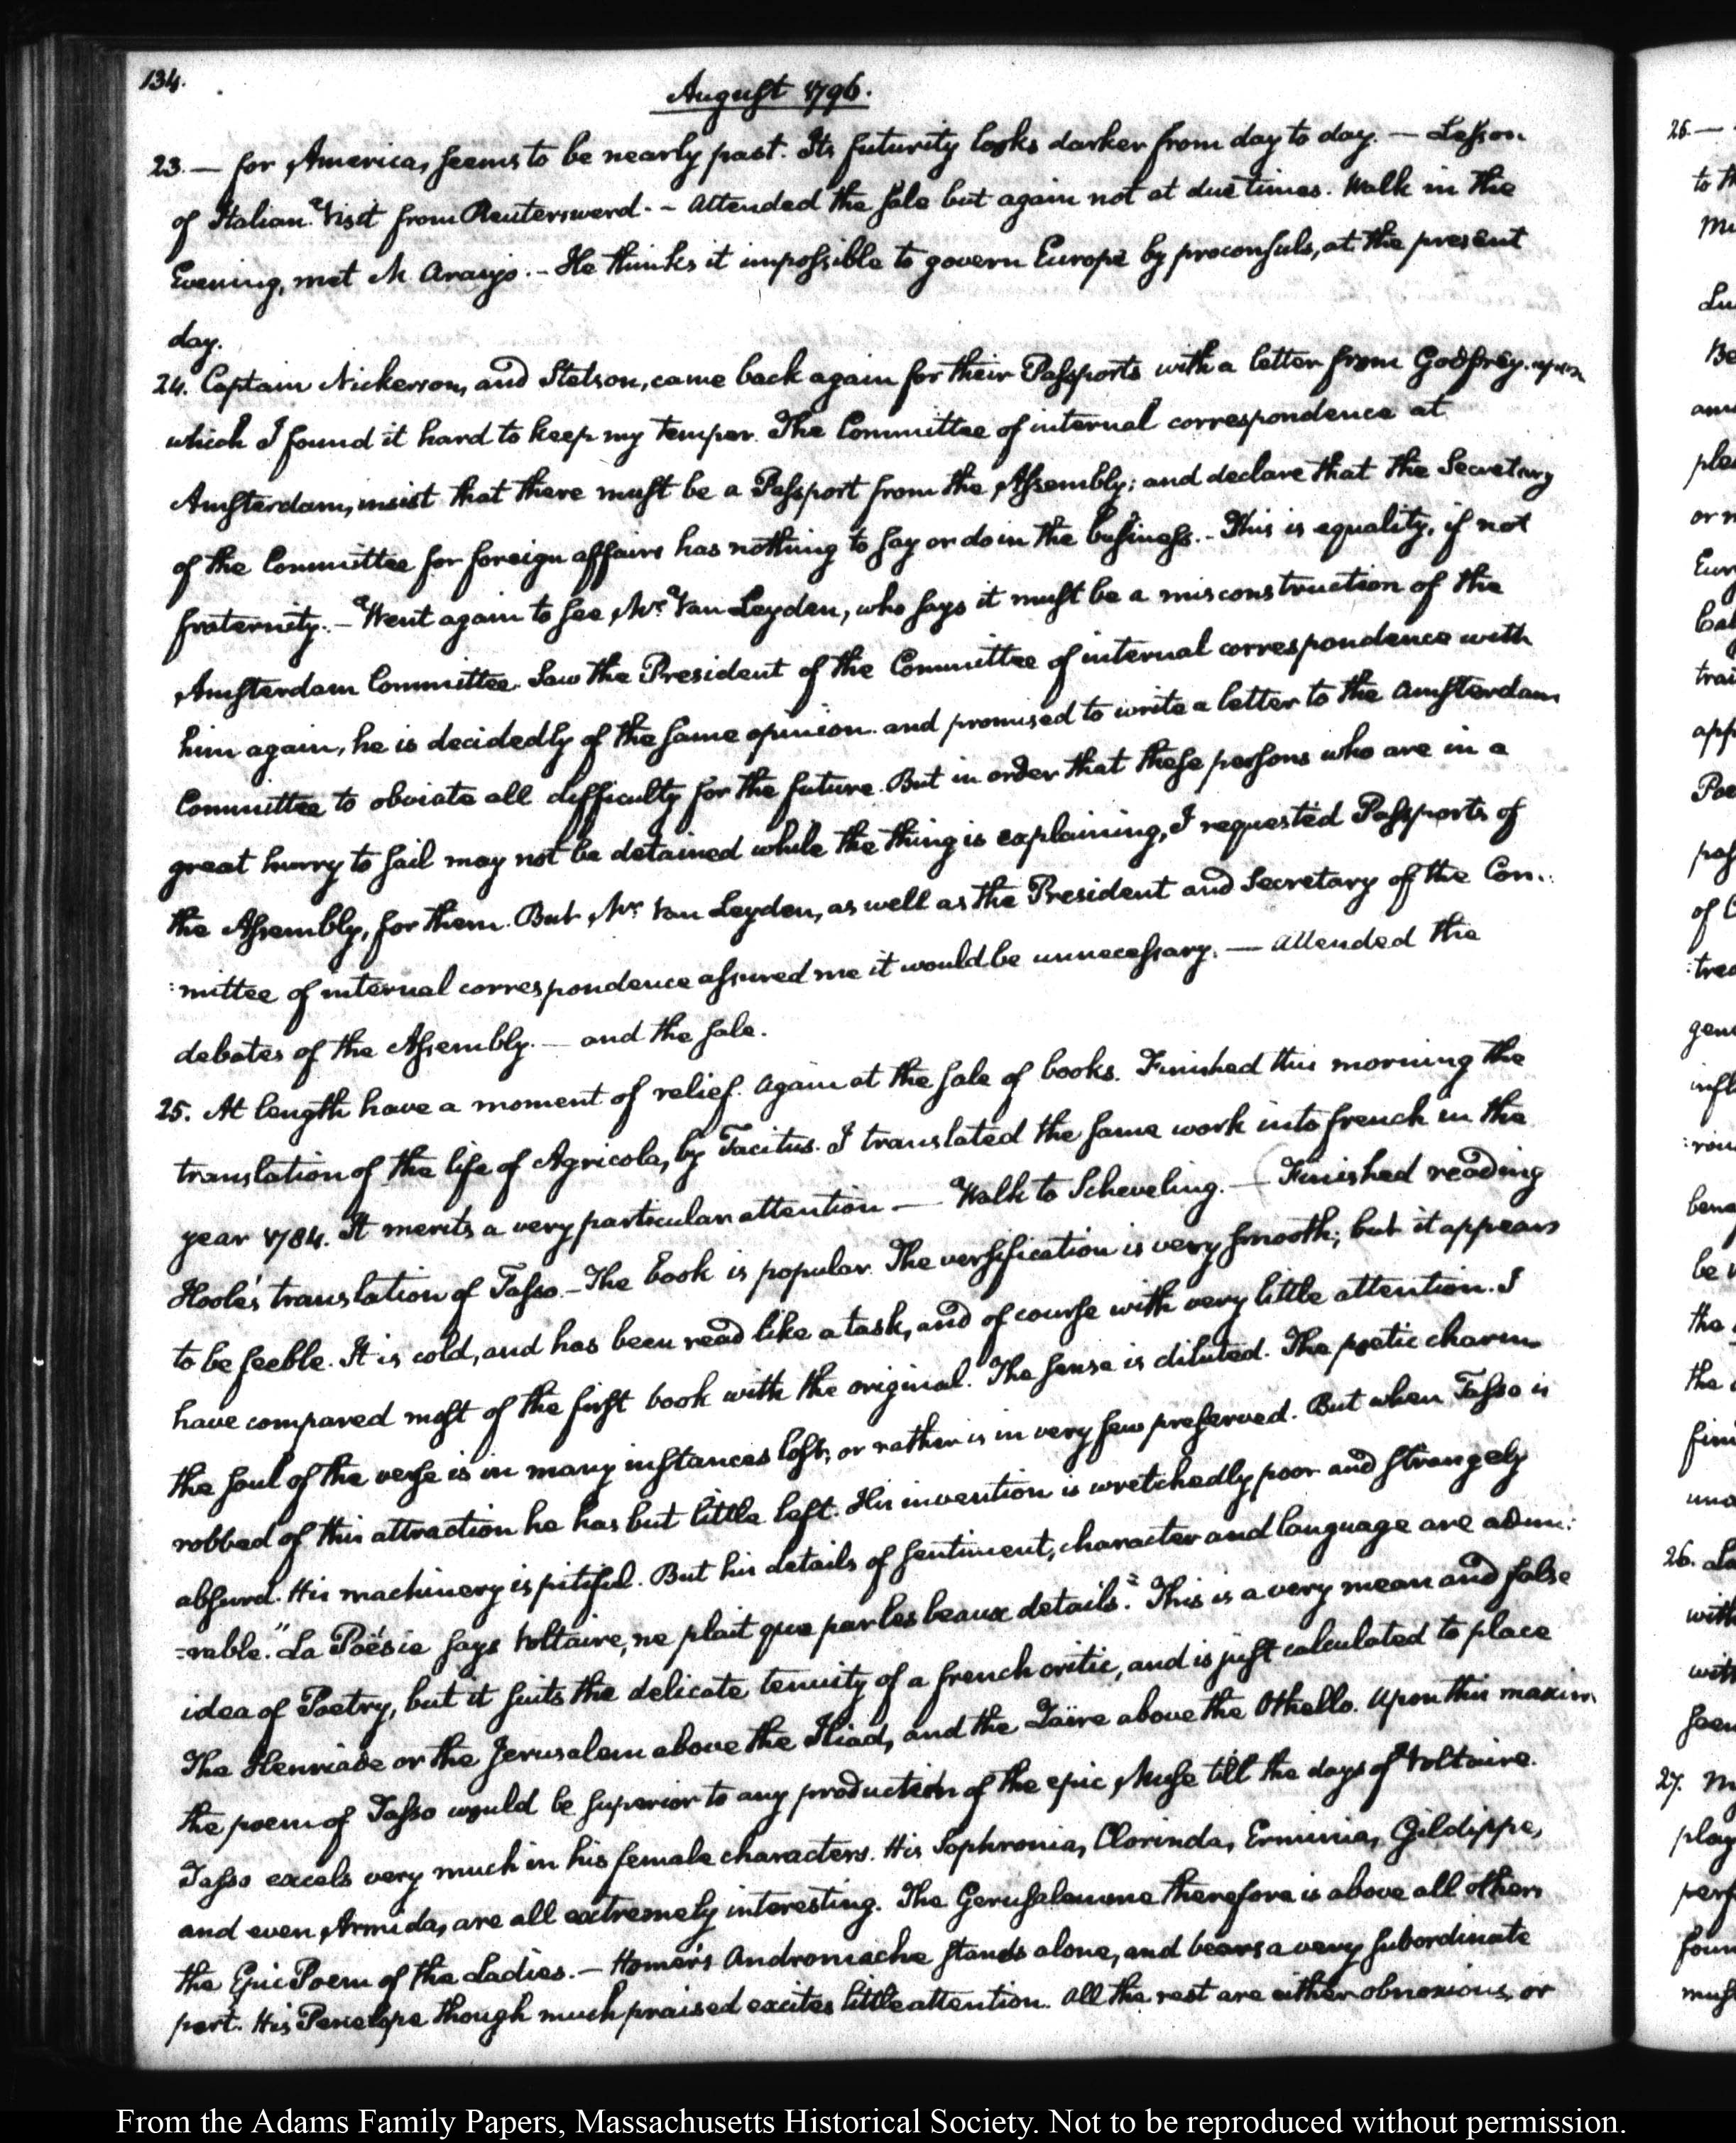 134.
August 1796.
23. — for America, seems to be nearly past. Its futurity looks darker from day to day. — Lesson
of Italian. Visit from Reuterswerd. - Attended the sale but again not at due times. Walk in the
Evening, met M. Araujo. - He thinks it impossible to govern Europe by proconsuls, at the present
day.
24. Captain Nickerson, and Stetson, came back again for their Passports with a letter from Godfrey. upon
which I found it hard to keep my temper. The Committee of internal correspondence at
Amsterdam, insist that there must be a Passport from the Assembly; and declare that the Secretary
of the Committee for foreign affairs has nothing to say or do in the business. - This is equality, if not
fraternity. - Went again to see Mr. Van Leyden, who says it must be a misconstruction of the
Amsterdam Committee. Saw the President of the Committee of internal correspondence with
him again, he is decidedly of the same opinion. and promised to write a letter to the Amsterdam
Committee to obviate all difficulty for the future. But in order that these persons who are in a
great hurry to sail may not be detained while the thing is explaining, I requested Passports of
the Assembly, for them. But Mr. Van Leyden, as well as the President and Secretary of the Com:
:mittee of internal correspondence assured me it would be unnecessary. — Attended the
debates of the Assembly. — and the sale.
25. At length have a moment of relief. Again at the sale of books. Finished this morning the
translation of the life of Agricola, by Tacitus. I translated the same work into french in the
year 1784. It merits a very particular attention — Walk to Scheveling. — Finished reading
Hoole's translation of Tasso. - The book is popular. The versification is very smooth; but it appears
to be feeble. It is cold, and has been read like a task, and of course with very little attention. I
have compared most of the first book with the original. The sense is diluted. The poetic charm
the soul of the verse is in many instances lost, or rather is in very few preserved. But when Tasso is
robbed of this attraction he has but little left. His invention is wretchedly poor and strangely
absurd. His machinery is pitiful. But his details of sentiment, character and language are admi:
-rable. "La Poësie says Voltaire, ne plait que par les beaux details". This is a very mean and false
idea of Poetry, but it suits the delicate tenuity of a french critic, and is just calculated to place
The Henriade or the Jerusalem above the Iliad, and the Zaïre above the Othello. Upon this maxim
the poem of Tasso would be superior to any production of the epic Muse till the days of Voltaire.
Tasso excels very much in his female characters. His Sophronia, Clorinda, Erminia, Gildippe,
and even Armida, are all extremely interesting. The Gerusalemme therefore is above all others
the Epic Poem of the Ladies. — Homer's Andromache stands alone, and bears a very subordinate
part. His Penelope though much praised excites little attention. All the rest are either obnoxious, or
26. —
26.
27.
From the Adams Family Papers, Massachusetts Historical Society. Not to be reproduced without permission.